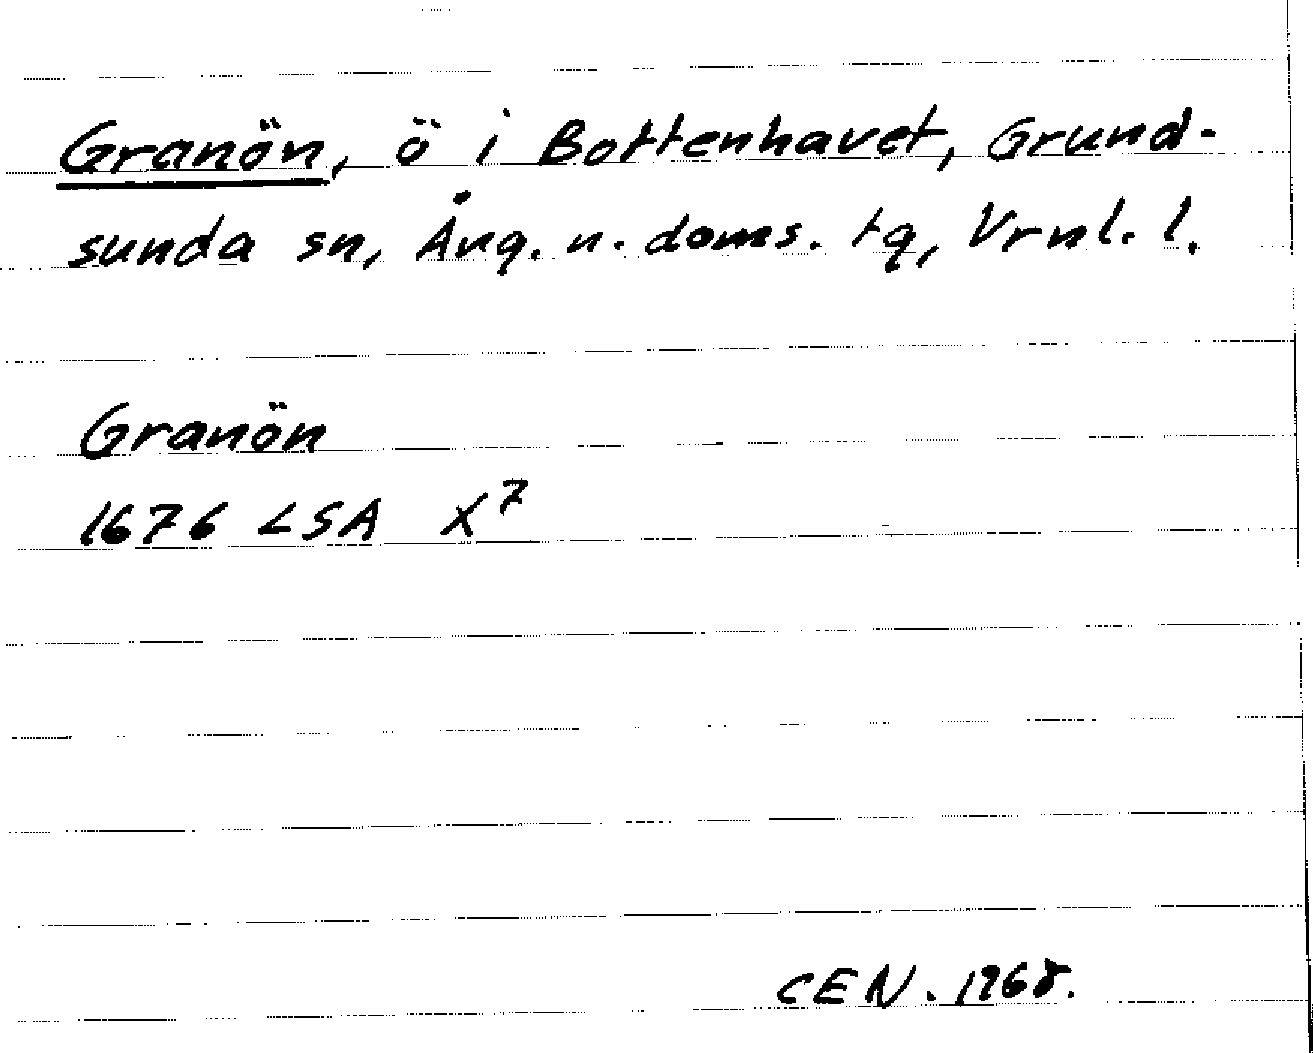 Granön, ö i Bottenhavet, Grund-
sunda sn, Ång. n. doms. tg, Vrnl. l.
Granön
1676 LSA X⁷
CEN. 1968.